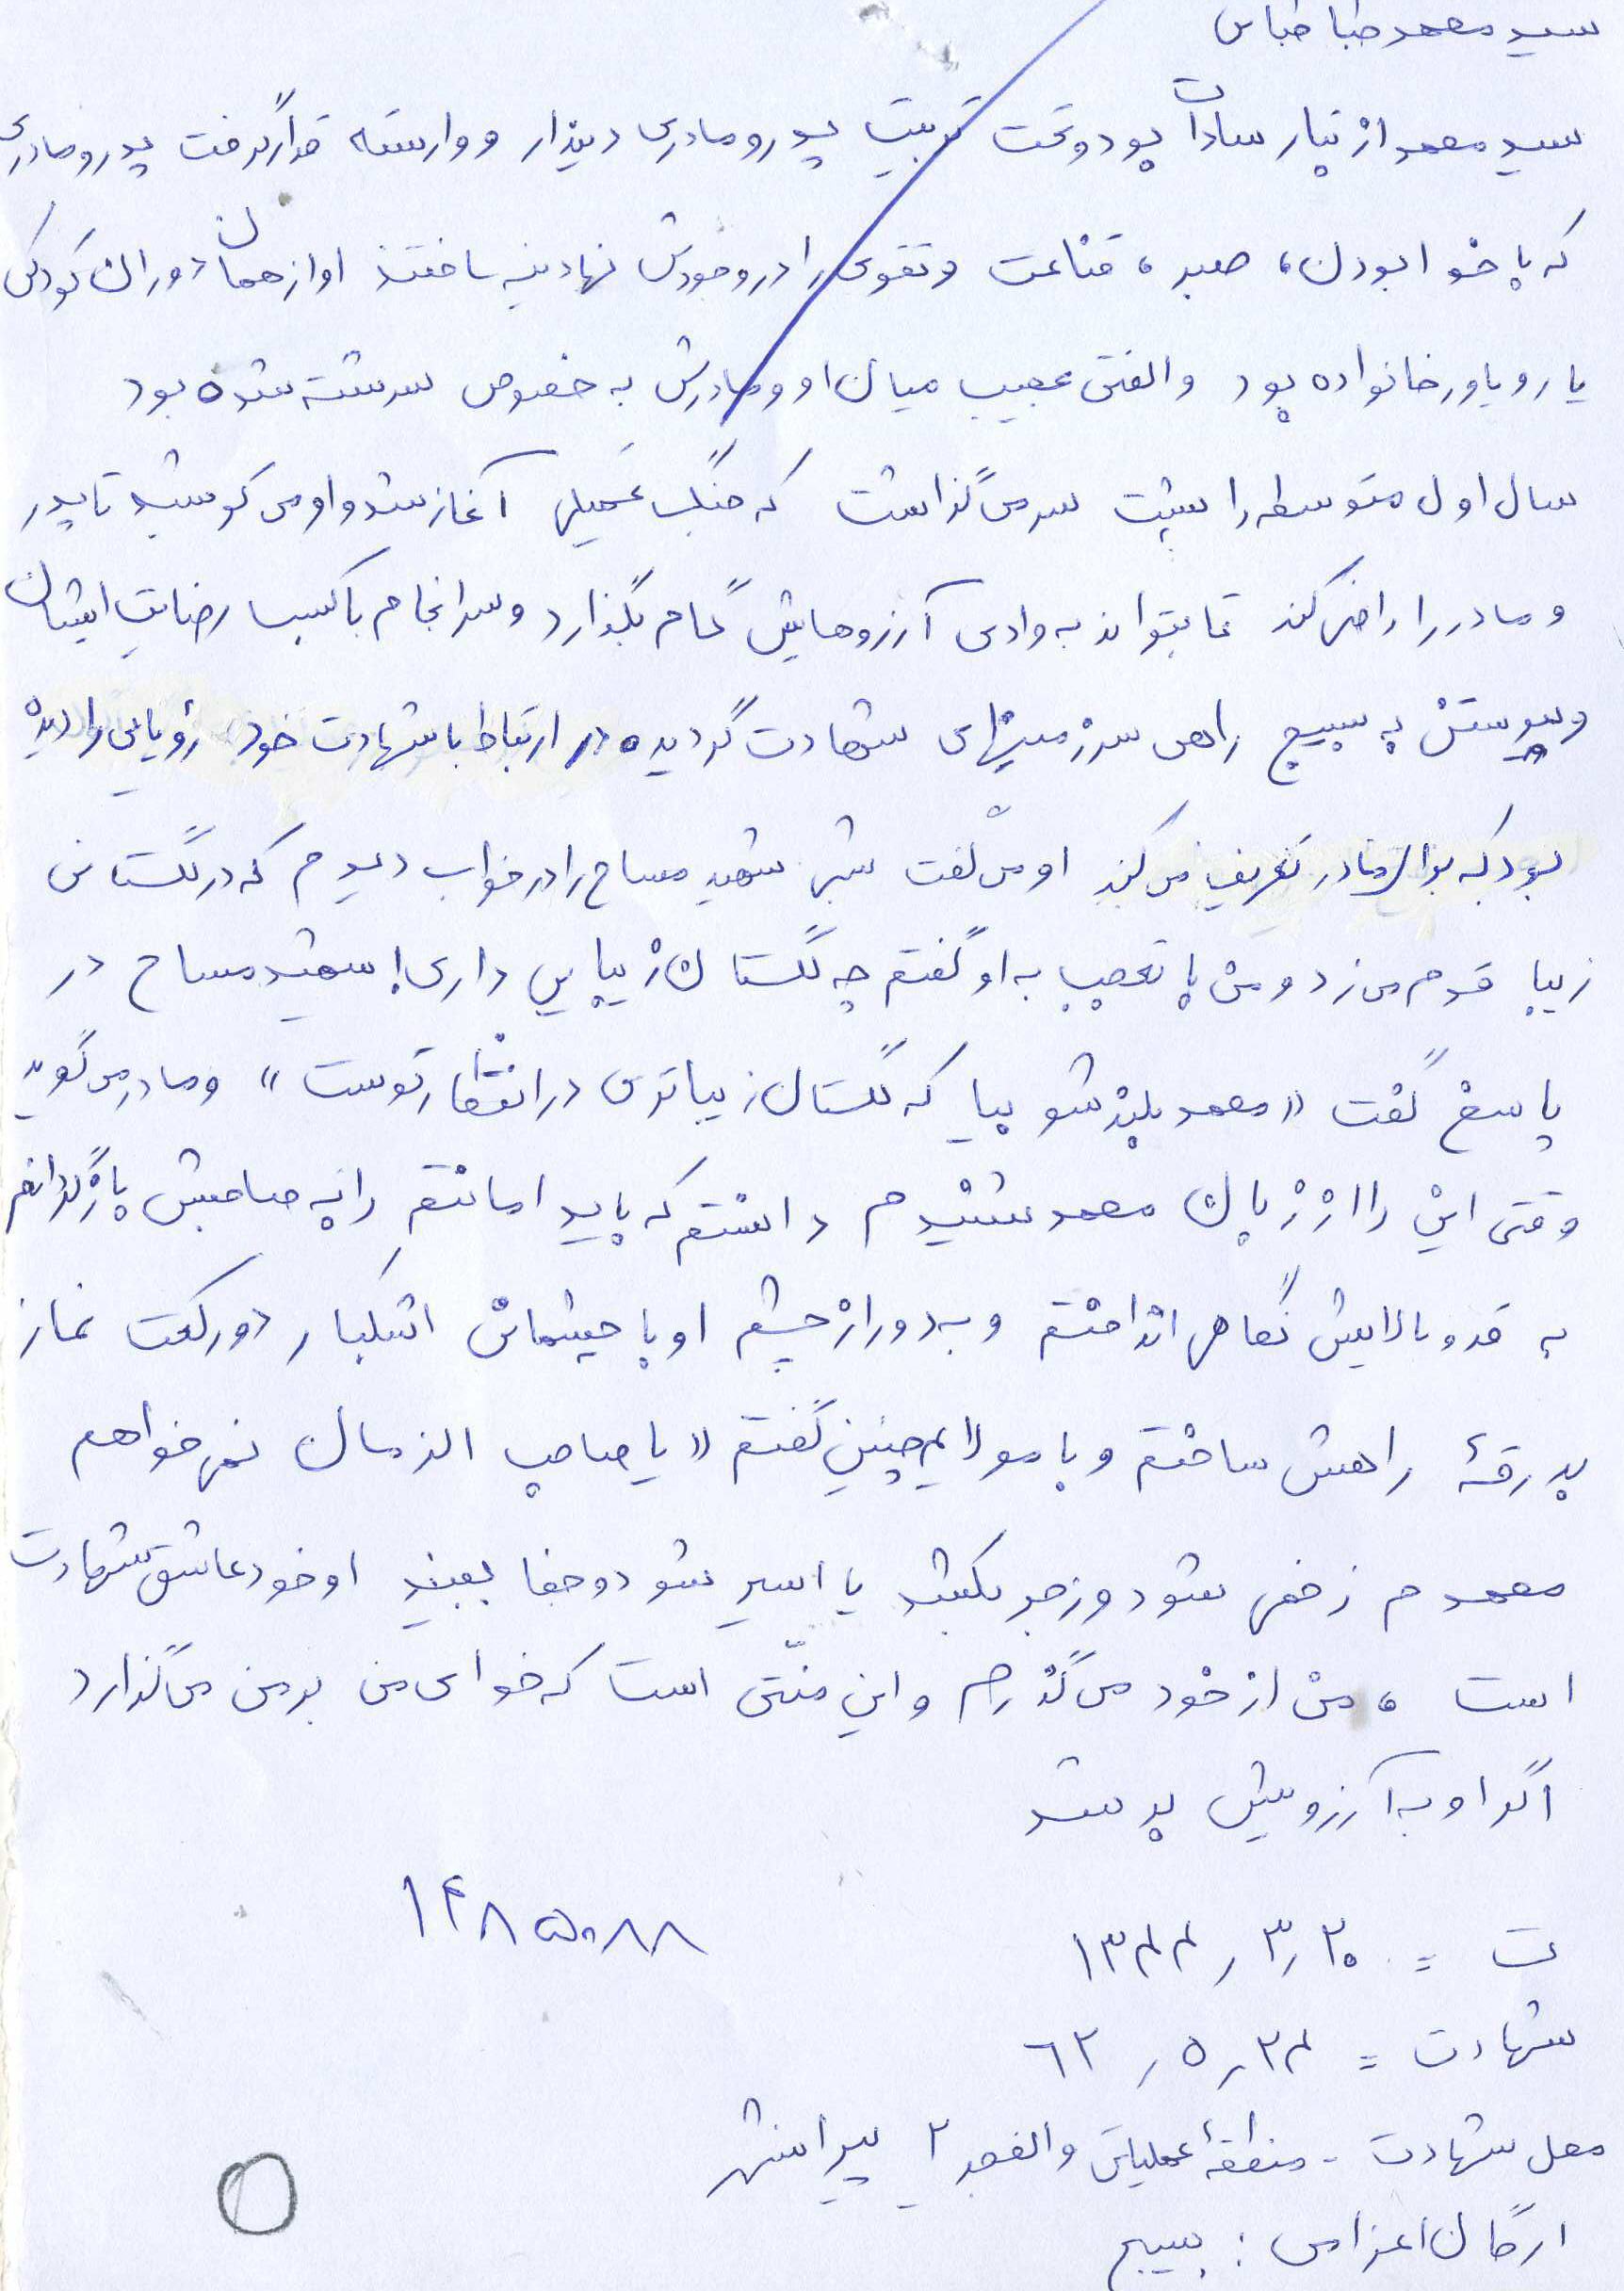 سید محمد طباطبایی
سید محمد از تبار سادات بود و تحت تربیت پدر و مادری دیندار و وارسته قرار گرفت پدر و مادری
که با خدا بودن، صبر، قناعت و تقوی را در وجودش نهادینه ساختند او از همان دوران کودکی
یار و یاور خانواده بود و الفتی عجیب میان او و مادرش به خصوص سرشته شده بود
سال اول متوسطه را پشت سر می گذاشت که جنگ تحمیلی آغاز شد و او می کوشید تا پدر
و مادر را راضی کند تا بتواند به وادی آرزوهایش گام بگذارد و سرانجام با کسب رضایت ایشان
و پیوستن به بسیج راهی سرزمینهای شهادت گردیده در ارتباط با شهادت خود رؤیایی را دیده
بود که برای مادر تعریف می کند او می گفت شبی شهید مساح را در خواب دیدم که در گلستانی
زیبا قدم می زد و من با تعجب به او گفتم چه گلستان زیبایی داری! شهید مساح در
پاسخ گفت «محمد بلند شو بیا که گلستان زیباتری در انتظار توست» و مادر می گوید
وقتی این را از زبان محمد شنیدم دانستم که باید امانتم را به صاحبش بازگردانم
به قد و بالایش نگاهی انداختم و به دور از چشم او با چشمانی اشکبار دو رکعت نماز
بدرقهٔ راهش ساختم و با مولایم چنین گفتم «یا صاحب الزمان نمی خواهم
محمدم زخمی شود و زجر بکشد یا اسیر شود و جفا ببیند او خود عاشق شهادت
است، من از خود می گذرم و این منّتی است که خدای من بر من می گذارد
اگر او به آرزویش برسد
۱۴۸۵۰۸۸
ت = ۱۳۴۴٫۳٫۲۰
شهادت = ۶۲٫۵٫۲۴
محل شهادت - منطقهٔ عملیاتی والفجر ۲ پیرانشهر
ارگان اعزامی: بسیج